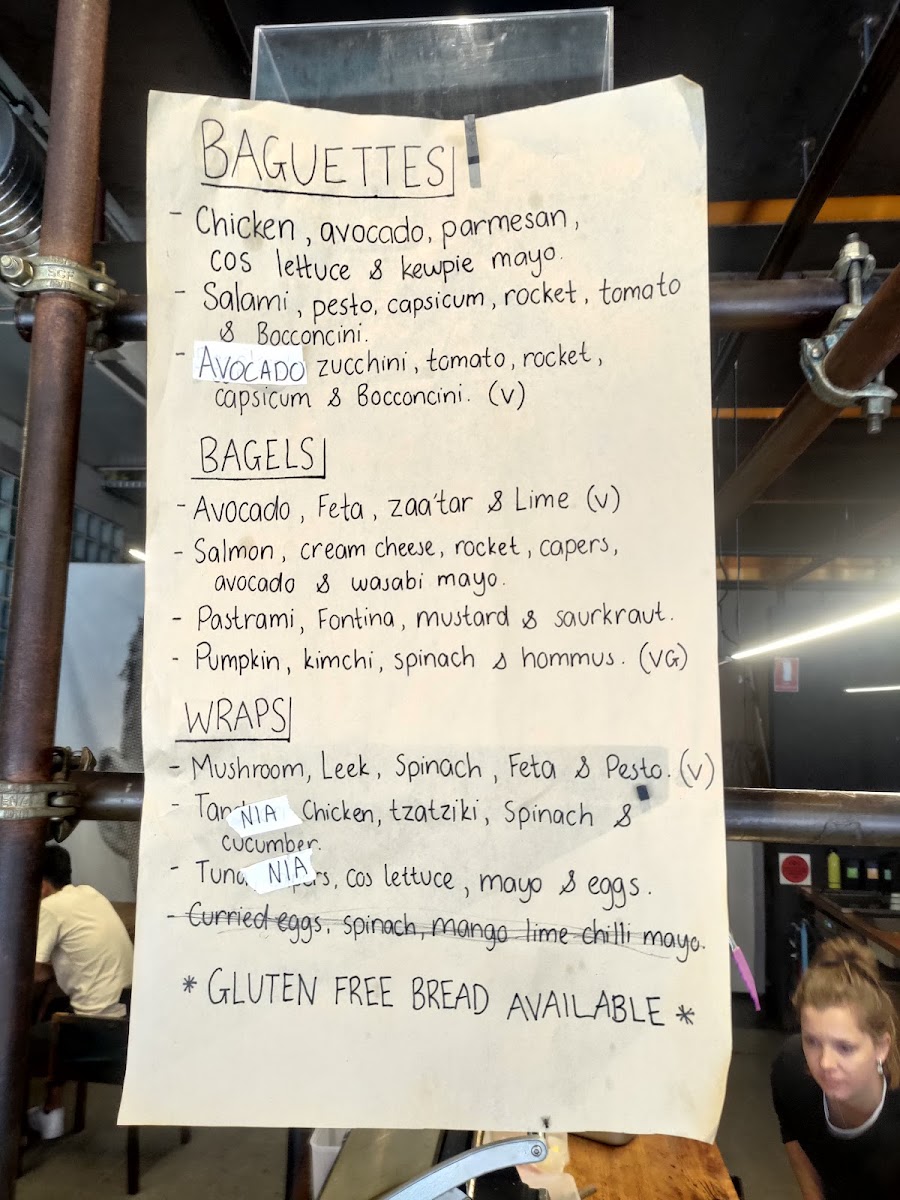 BAGUETTES
- Chicken, avocado, parmesan,
cos lettuce & kewpie mayo.
- Salami, pesto, capsicum, rocket, tomato
& Bocconcini.
- AVOCADO zucchini, tomato, rocket,
capsicum & Bocconcini. (v)
BAGELS
- Avocado, Feta, zaa'tar & Lime (v)
- Salmon, cream cheese, rocket, capers,
avocado & wasabi mayo.
- Pastrami, Fontina, mustard & saurkraut.
- Pumpkin, kimchi, spinach & hommus. (VG)
WRAPS
- Mushroom, Leek, Spinach, Feta & Pesto. (v)
- NIA Chicken, tzatziki, Spinach &
cucumber.
- Tuna NIA cos lettuce, mayo & eggs.
- Curried eggs, spinach, mango lime chilli mayo.
* GLUTEN FREE BREAD AVAILABLE *